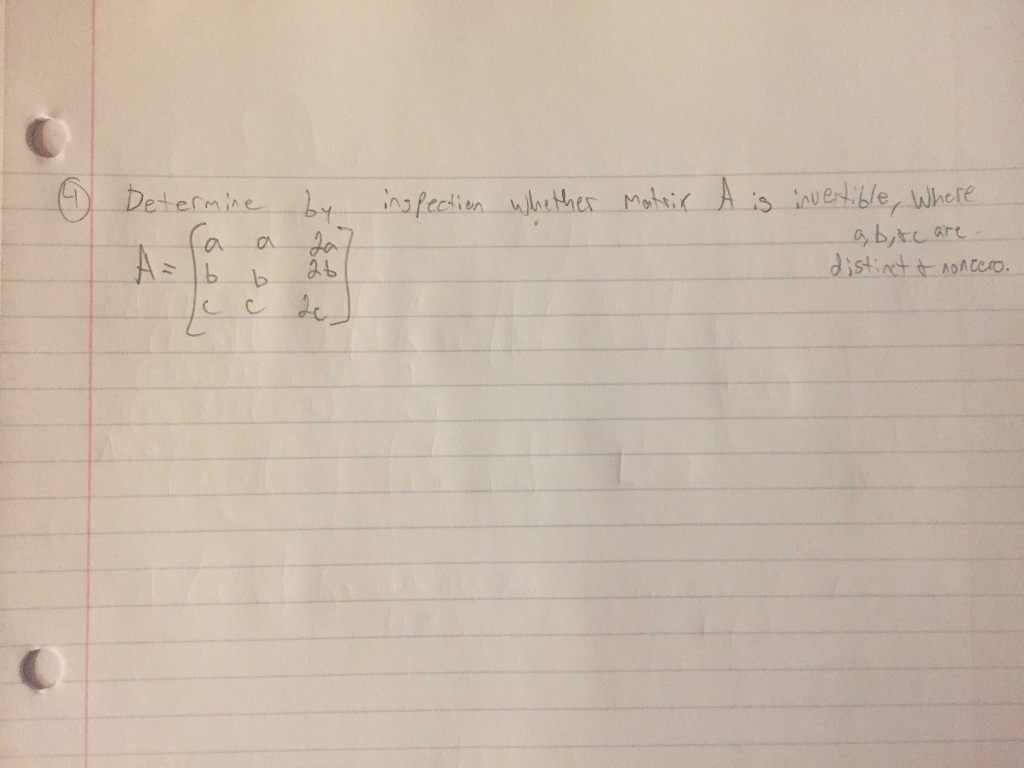 ④ Determine by inspection whether matrix A is invertible, Where
a, b, & c are
distinct & nonzero.
A = [a a 2a
b b 2b
c c 2c]